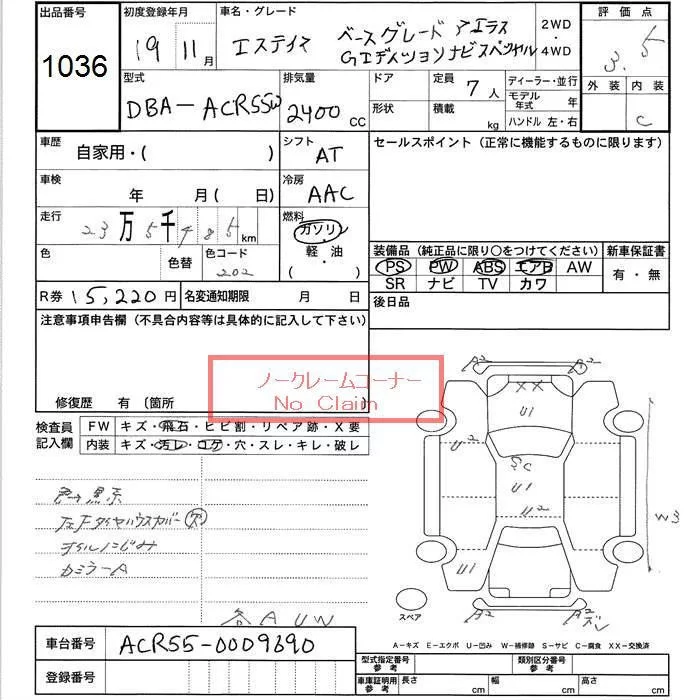 出品番号 初度登録年月 車名・グレード 評価点
1036 19 11月 エスティマ ベースグレード アエラス 2WD・4WD 3.5
Gエディション ナビスペシャル
型式 排気量 ドア 定員 7人 ディーラー・並行 外装 内装
DBA-ACR55W 2400 CC 形状 積載 kg モデル年式 年 C
ハンドル 左・右
車歴 自家用・( ) シフト AT セールスポイント（正常に機能するものに限ります）
車検 年 月( 日) 冷房 AAC
走行 23万5千485km 燃料 ガソリン・軽油 ( )
色 色替 色コード 202
装備品（純正品に限り○をつけてください） 新車保証書
PS PW ABS エアB AW 有・無
SR ナビ TV カワ
R券 15,220円 名変通知期限 月 日 後日品
注意事項申告欄（不具合内容等は具体的に記入して下さい）
ノークレームコーナー
No Claim
修復歴 有〔箇所
検査員記入欄 FW キズ・飛石・ヒビ割・リペア跡・X要
内装 キズ・汚レ・コゲ・穴・スレ・キレ・破レ
色→黒系
左Fタイヤハウスカバー欠
オイルにじみ
カミラーA
各AUW
A2 A2
XX
U1
U2
SC
U1
U2
U1
W3
A2 A2
ズレ
スペア
A-キズ E-エクボ U-凹み W-補修跡 S-サビ C-腐食 XX-交換済
車台番号 ACR55-0009690
登録番号
型式指定番号 参考 類別区分番号 参考
車庫証明用 参考 長さ cm 幅 cm 高さ cm